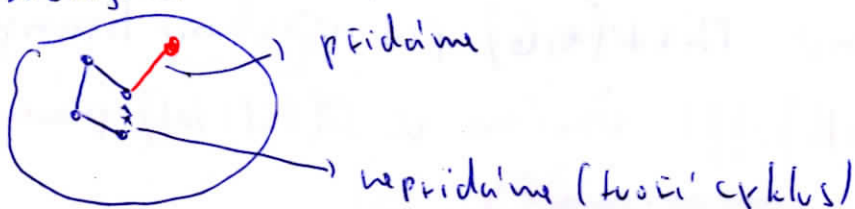 přidáme
nepřidáme (tvoří cyklus)